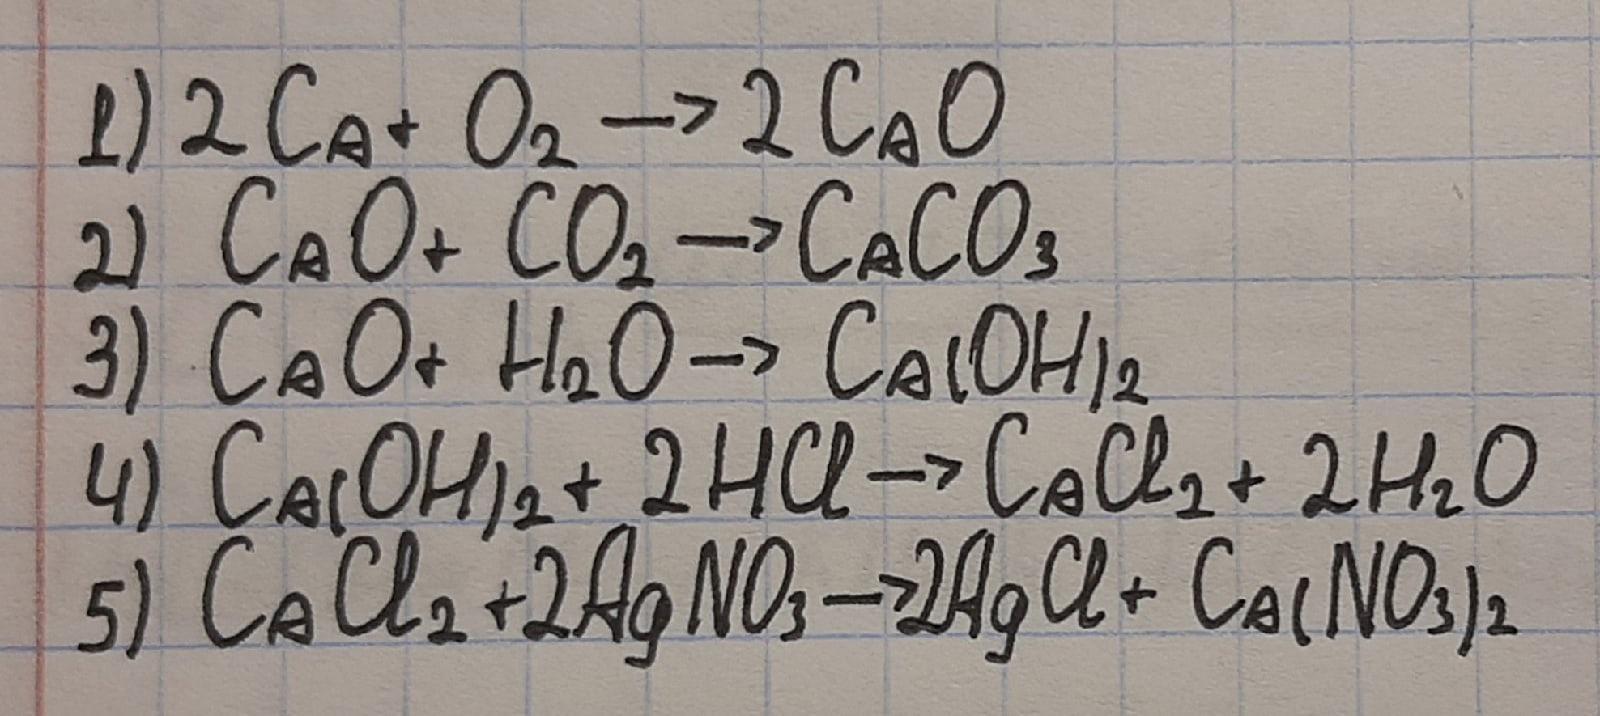 1) 2Ca + O₂ → 2CaO
2) CaO + CO₂ → CaCO₃
3) CaO + H₂O → Ca(OH)₂
4) Ca(OH)₂ + 2HCl → CaCl₂ + 2H₂O
5) CaCl₂ + 2AgNO₃ → 2AgCl + Ca(NO₃)₂